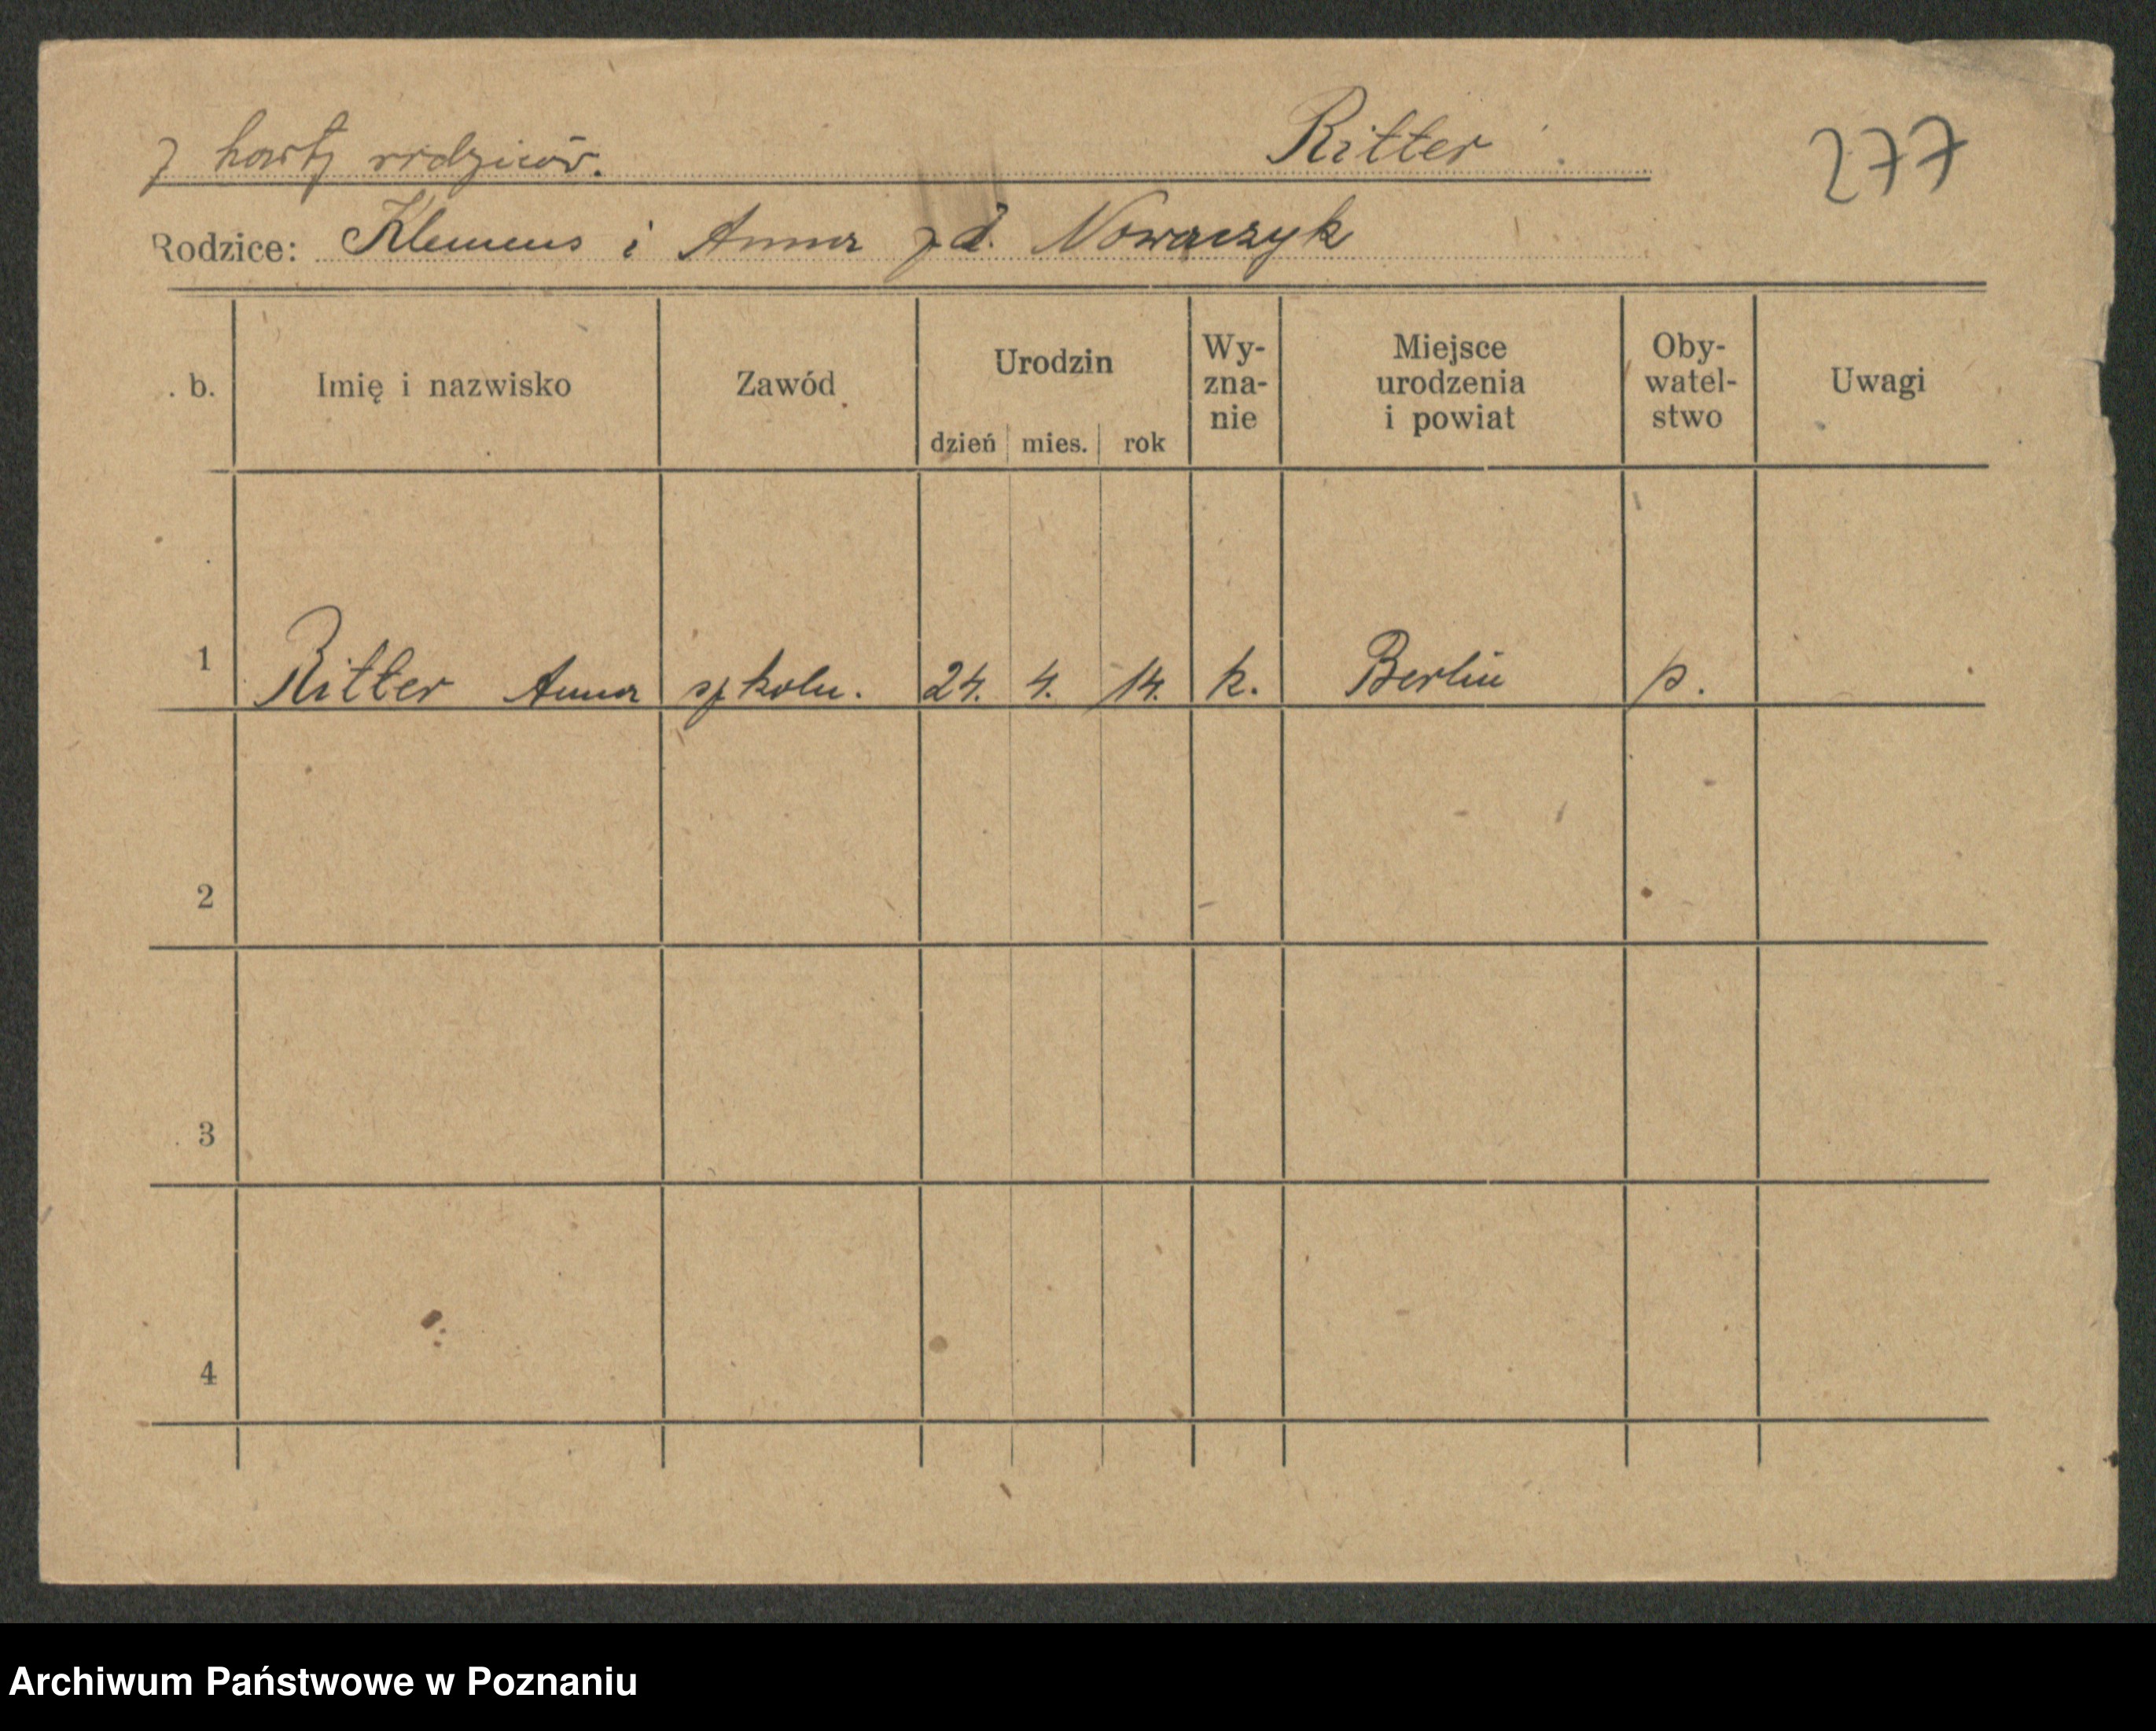 z karty rodziców. Ritter 277
Rodzice: Klemens i Anna z d. Nowaczyk
. b. Imię i nazwisko Zawód Urodzin dzień mies. rok Wy-zna-nie Miejsce urodzenia i powiat Oby-watel-stwo Uwagi
1 Ritter Anna szkoln. 24. 4. 14. k. Berlin p.
2
3
4
Archiwum Państwowe w Poznaniu